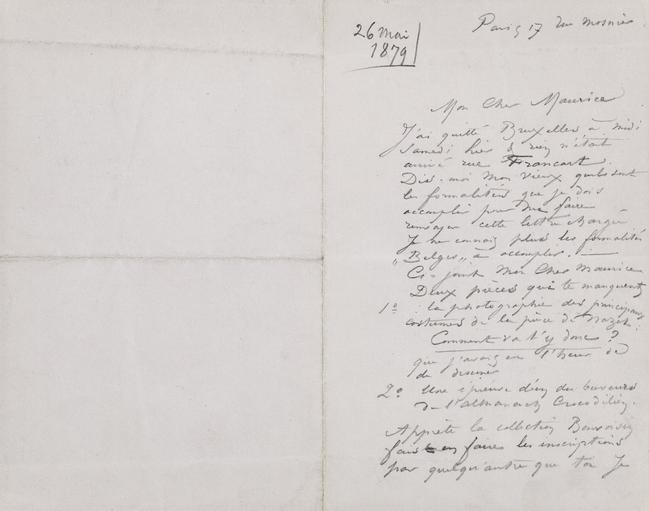 26 Mai
1879
Paris 17 rue Mosnier
Mon Cher Maurice
J'ai quitté Bruxelles à midi
Samedi hier & rien n'était
arrivé rue Francart.
Dis-moi Mon vieux quels sont
les formalités que je dois
accomplir pour me faire
renvoyer cette lettre chargée
Je ne connais plus les formalités
„Belges„ à accomplir. —
Ci-joint Mon Cher Maurice
Deux pièces qui te manquent
1º : la photographie des principaux
costumes de la pièce de
Comment va t'y donc ?
que j'avais eu l'heur de
de dessiner
2º Une épreuve d'un des buveurs
de l'almanach Crocodilien.
Apprête la collection Bonvoisin
fais en faire les inscriptions
par quelqu'autre que toi Je